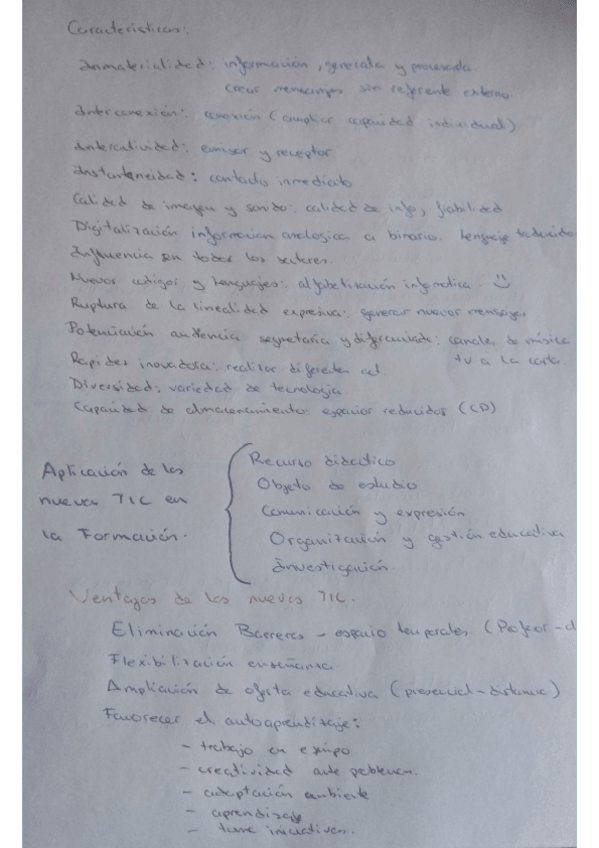 Características:
Inmaterialidad: información, generada y procesada.
crear mensajes sin referente externo
Interconexión: conexión (ampliar capacidad individual)
Interactividad: emisor y receptor
Instantaneidad: contacto inmediato
Calidad de imagen y sonido: calidad de info, fiabilidad
Digitalización información analogica a binario. lenguaje traducido
Influencia en todos los sectores.
Nuevos codigos y lenguajes: alfabetización informatica. :)
Ruptura de la linealidad expresiva: generar nuevos mensajes
Potenciación audiencia segmetaria y diferenciada: canales de música
tv a la carta.
Rapidez inovadora: realizar diferentes act.
Diversidad: variedad de tecnología.
Capacidad de almacenamiento: espacios reducidos (CD)
Aplicación de las
nuevas TIC en
la Formación.
Recurso didactico
Objeto de estudio
Comunicación y expresión
Organización y gestión educativa
Investigación.
Ventajas de las nuevas TIC.
Eliminación Barreras - espacio temporales (Profesor-
Flexibilización enseñanza
Ampliación de oferta educativa (presencial-distancia)
Favorecer el autoaprendizaje:
- trabajo en equipo
- creatividad ante problemas.
- adaptación ambiente
- aprendizaje
- tomar iniciativas.